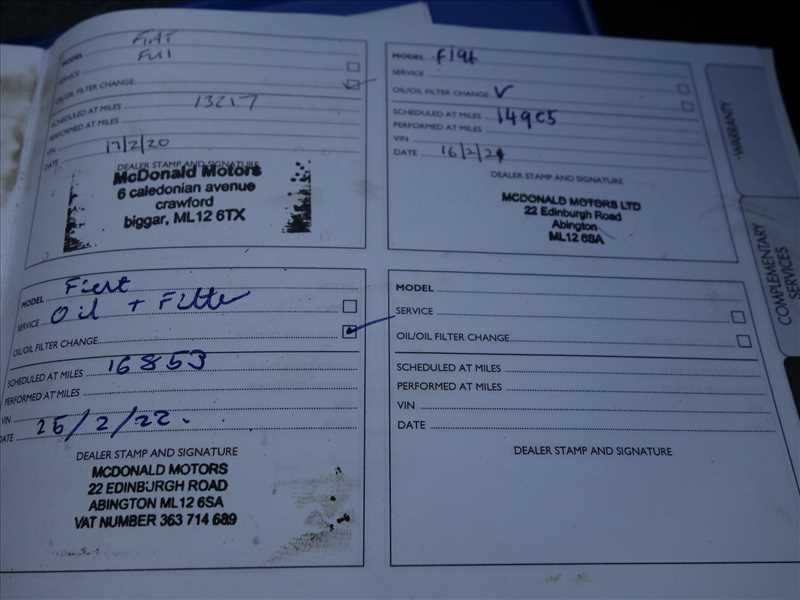 Fiat
MODEL Full
SERVICE
OIL/OIL FILTER CHANGE
SCHEDULED AT MILES 13217
PERFORMED AT MILES
VIN
DATE 17/2/20
DEALER STAMP AND SIGNATURE
McDonald Motors
6 caledonian avenue
crawford
biggar, ML12 6TX
MODEL Fiat
SERVICE
OIL/OIL FILTER CHANGE ✓
SCHEDULED AT MILES 14905
PERFORMED AT MILES
VIN
DATE 16/2/21
DEALER STAMP AND SIGNATURE
MCDONALD MOTORS LTD
22 Edinburgh Road
Abington
ML12 6SA
MODEL Fiat
SERVICE Oil + Filter
OIL/OIL FILTER CHANGE
SCHEDULED AT MILES 16853
PERFORMED AT MILES
VIN
DATE 25/2/22.
DEALER STAMP AND SIGNATURE
MCDONALD MOTORS
22 EDINBURGH ROAD
ABINGTON ML12 6SA
VAT NUMBER 363 714 689
MODEL
SERVICE
OIL/OIL FILTER CHANGE
SCHEDULED AT MILES
PERFORMED AT MILES
VIN
DATE
DEALER STAMP AND SIGNATURE
WARRANTY
COMPLEMENTARY
SERVICES